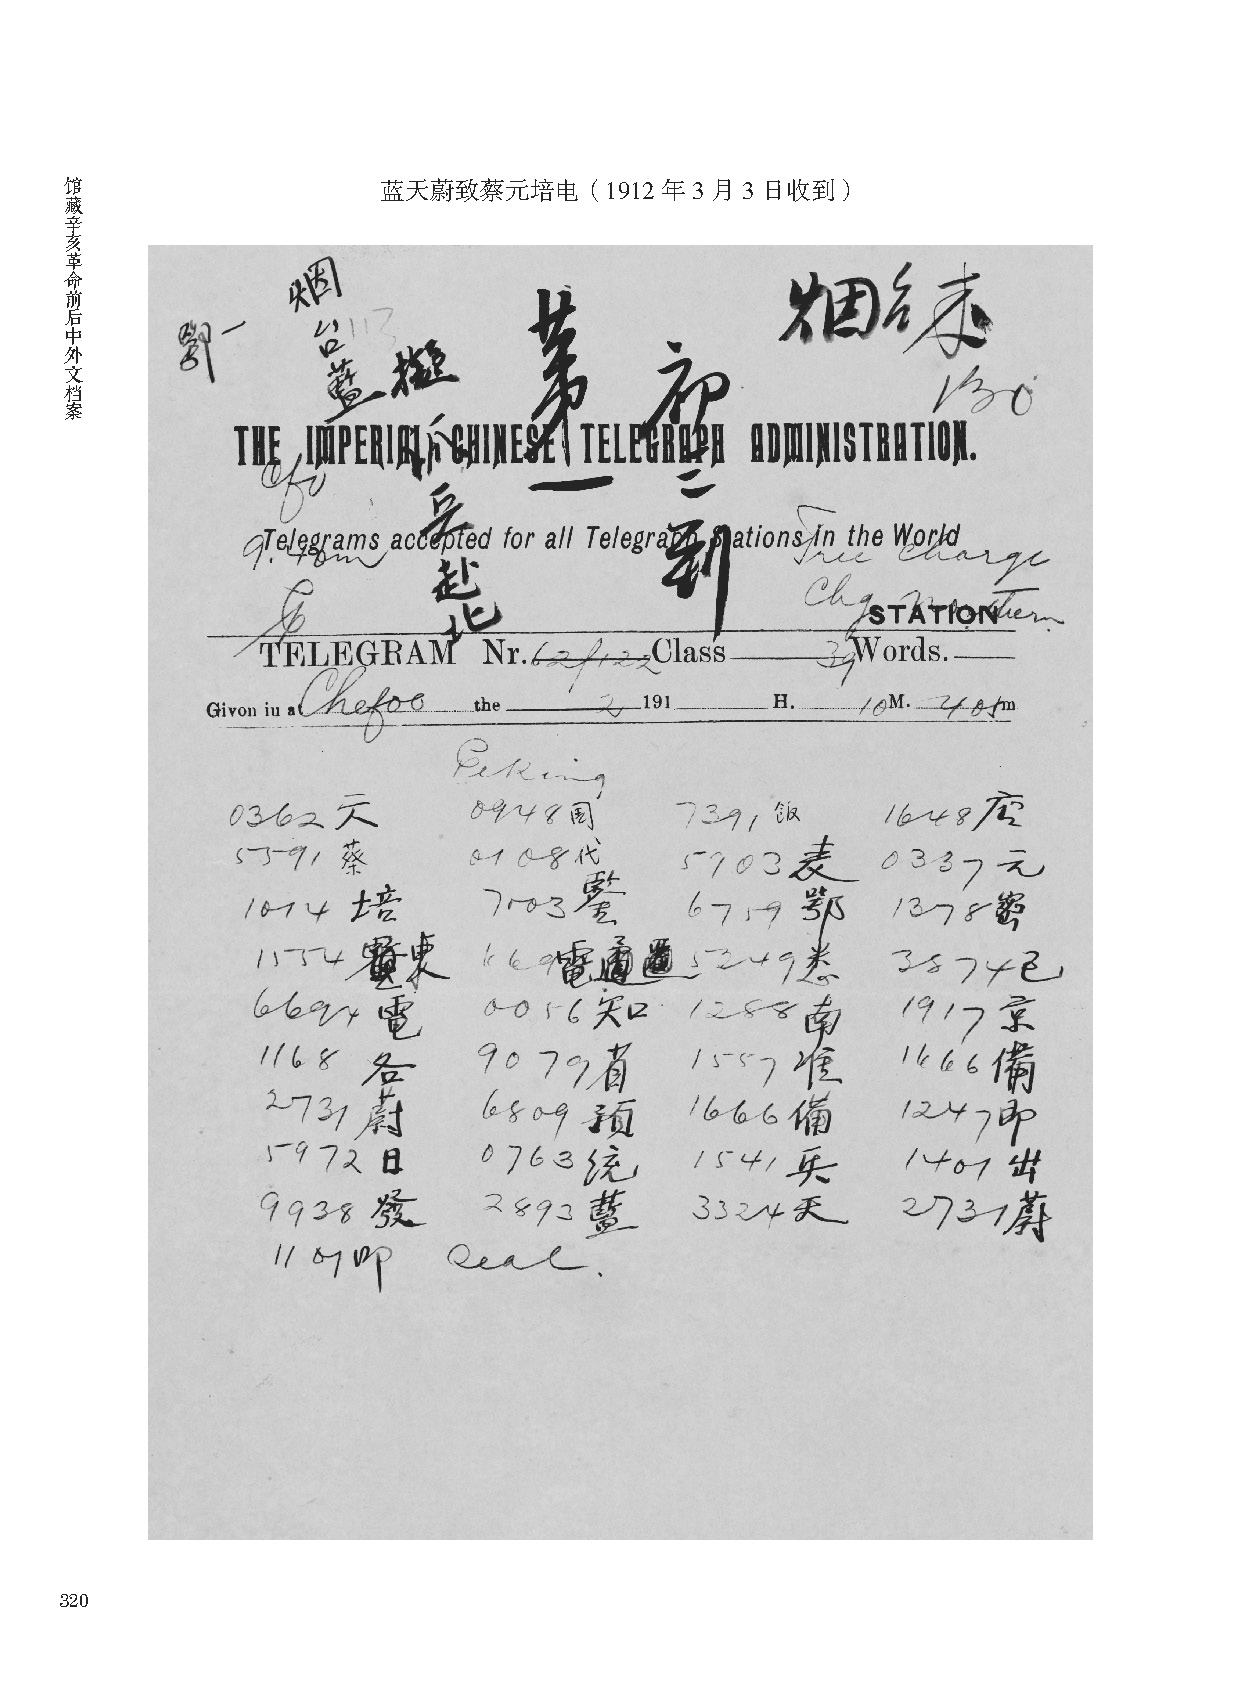 馆藏辛亥革命前后中外文档案
蓝天蔚致蔡元培电（1912 年 3 月 3 日收到）
鄂一
烟台藍擬
兵赴北
第一
初二到
烟台来
130
THE IMPERIAL CHINESE TELEGRAPH ADMINISTRATION.
Cfo
Telegrams accepted for all Telegraph Stations in the World
9.40m
Free Charge
Chg Northern
STATION
TELEGRAM Nr. 62/122 Class 39 Words.
Givon iu at Chefoo the 2 191 H. 10 M. 40 m
Peking
0362 天 0948 国 7391 飯 1648 店
5591 蔡 0108 代 5903 表 0337 元
1014 培 7503 鑒 6759 鄂 1378 密
1554 東 669 電通 5249 悉 3874 已
6694 電 0056 知 1288 南 1917 京
1168 各 9079 省 1557 准 1666 備
2731 蔚 6809 預 1666 備 1247 即
5972 日 0763 统 1541 兵 1401 出
9938 發 2893 藍 3324 天 2731 蔚
1107 印 Seal.
320